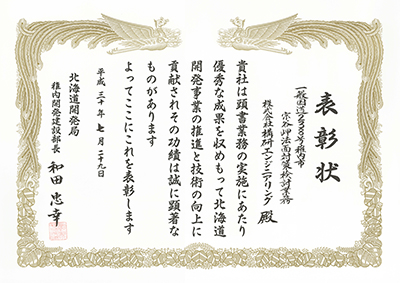 表彰状
一般国道238号稚内市
宗谷岬法面対策検討業務
株式会社構研エンジニアリング 殿
貴社は頭書業務の実施にあたり
優秀な成果を収めもって北海道
開発事業の推進と技術の向上に
貢献されその功績は誠に顕著な
ものがあります
よってここにこれを表彰します
平成三十年七月二十九日
北海道開発局
稚内開発建設部長 和田忠幸